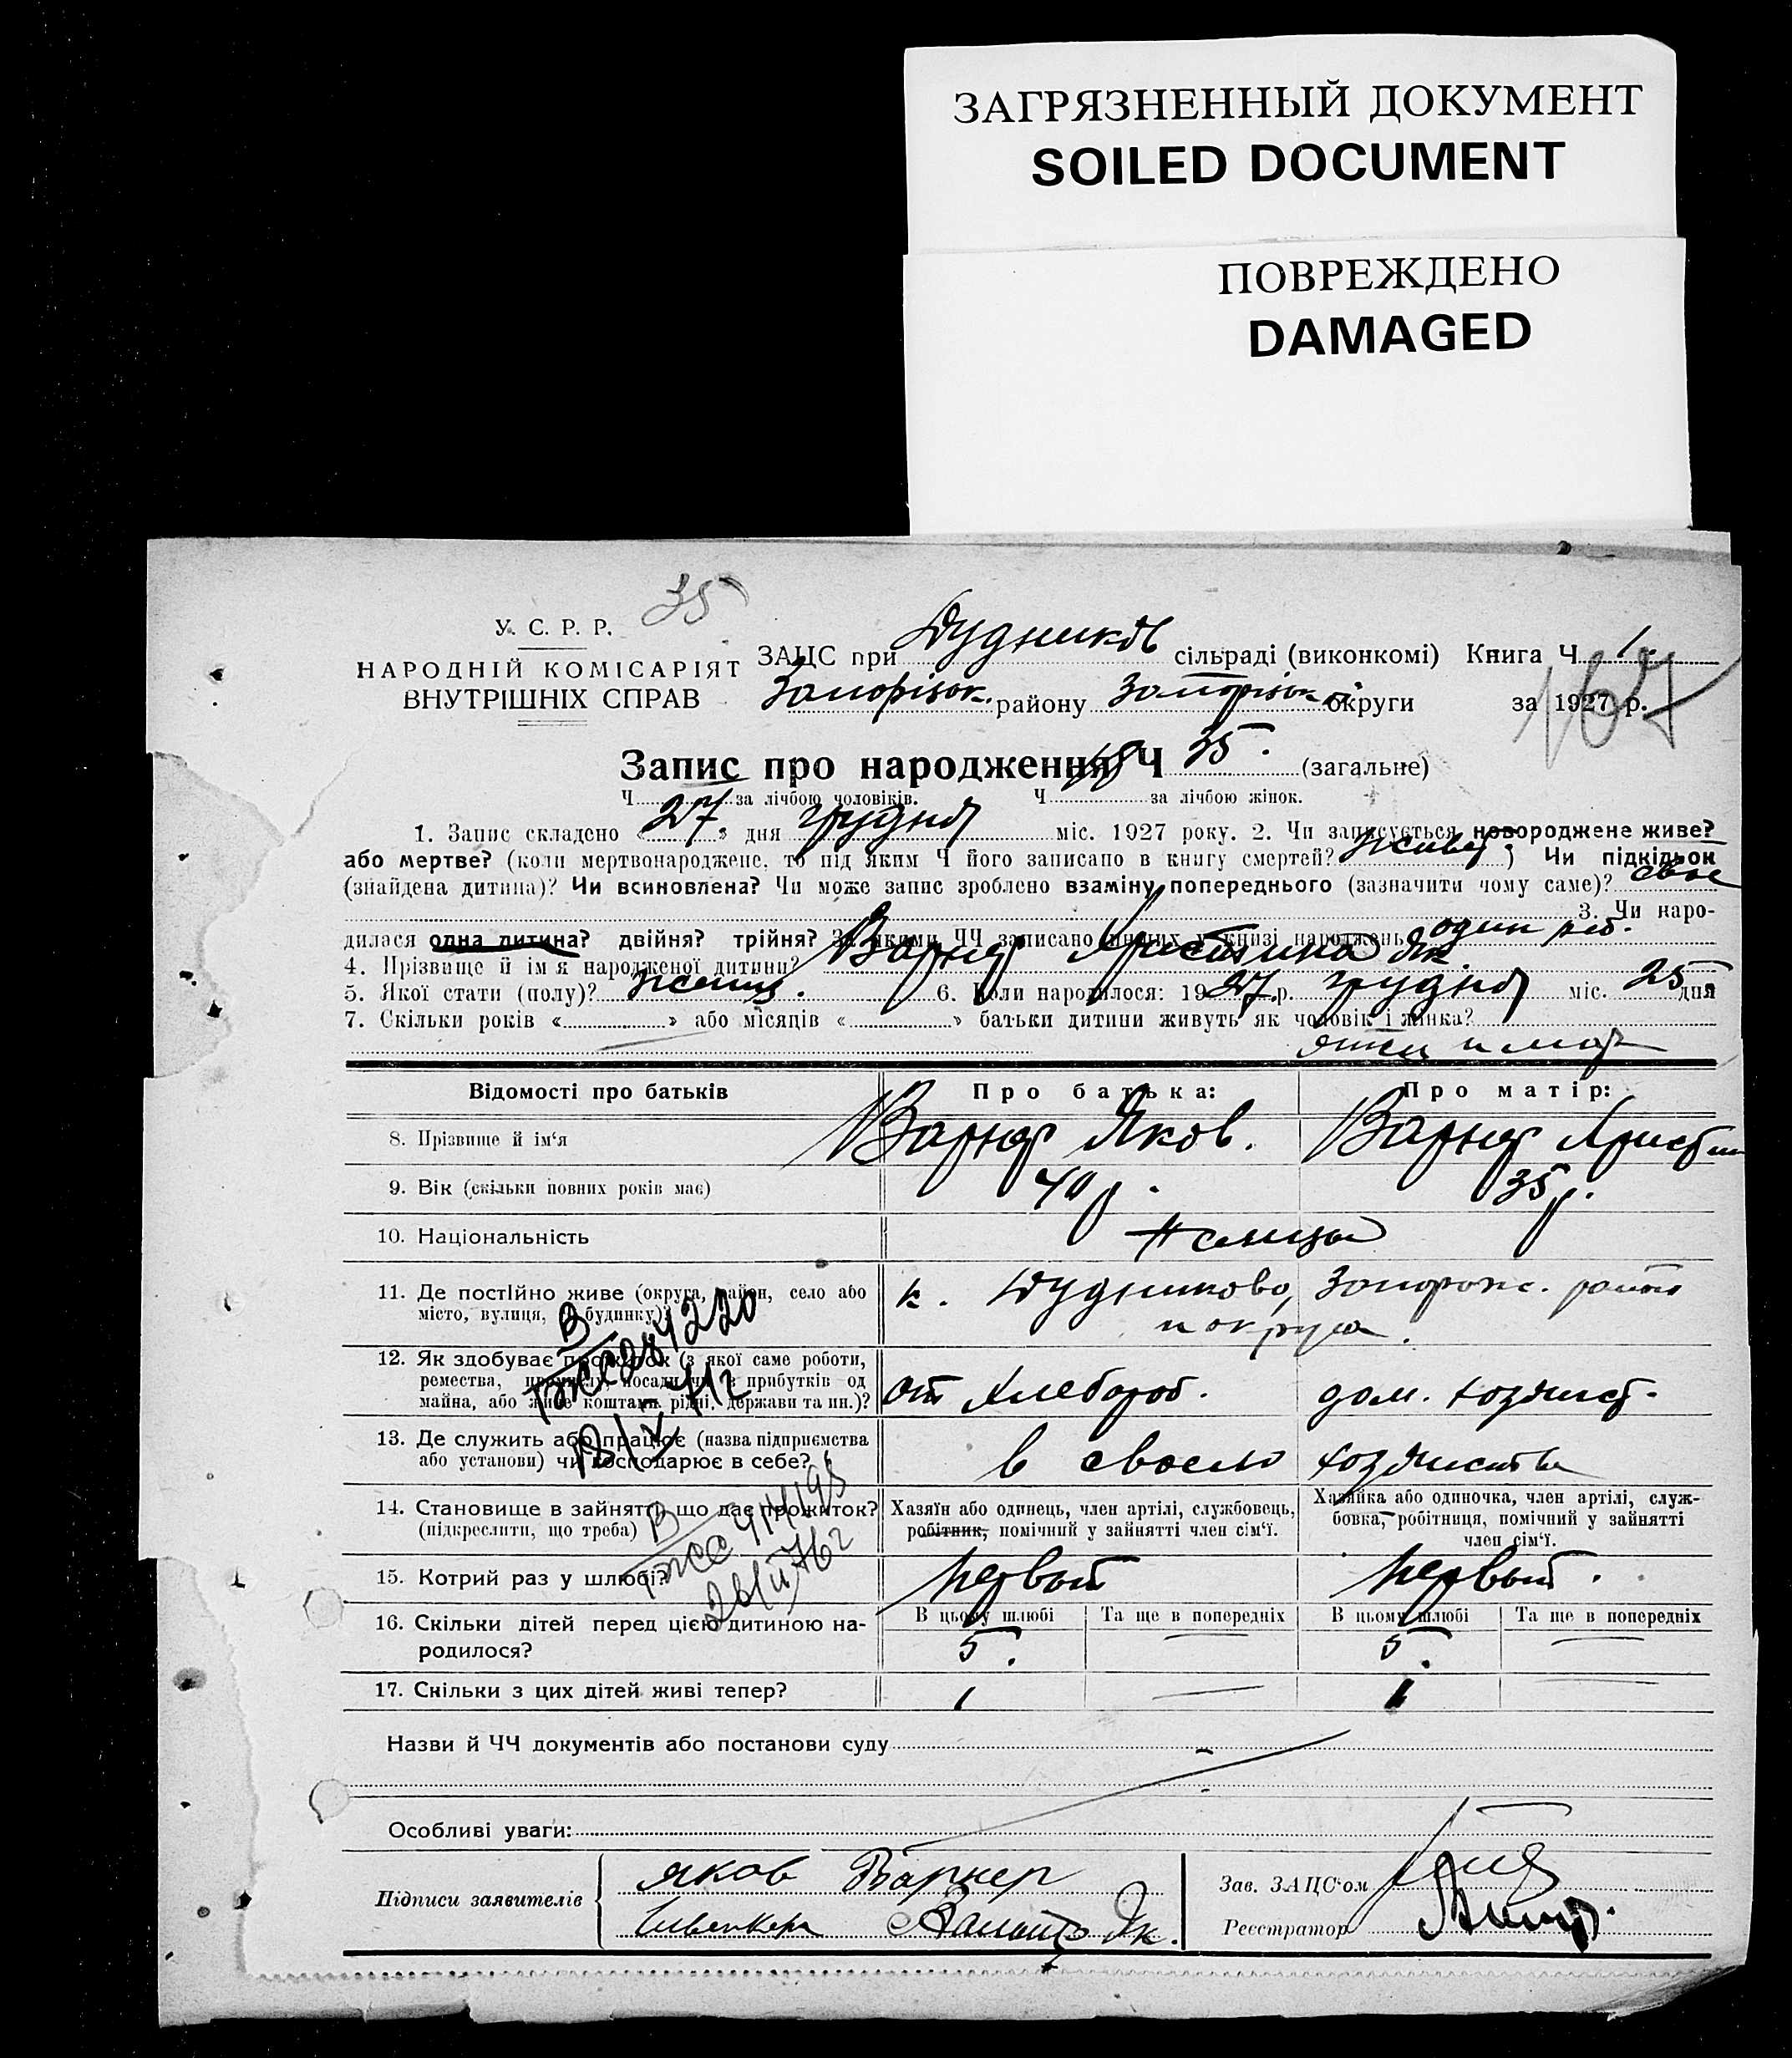 ЗАГРЯЗНЕННЫЙ ДОКУМЕНТ
SOILED DOCUMENT
ПОВРЕЖДЕНО
DAMAGED
35
У. С. Р. Р.
НАРОДНІЙ КОМІСАРІЯТ
ВНУТРІШНІХ СПРАВ
ЗАЦС при Дудников сільраді (виконкомі) Книга Ч. 1
Запорізьк. району Запорізьк. округи за 1927 р.
167
Запис про народження Ч 25. (загальне)
Ч. за лічбою чоловіків. Ч. за лічбою жінок.
1. Запис складено « 27 » дня грудня міс. 1927 року. 2. Чи записується новороджене живе?
або мертве? (коли мертвонароджене, то під яким Ч його записано в книгу смертей? живе) Чи підкідьок
(знайдена дитина)? Чи всиновлена? Чи може запис зроблено взаміну попереднього (зазначити чому саме)? свое
3. Чи наро-
дилася одна дитина? двійня? трійня? За якими ЧЧ записано инших у книзі народжень один реб.
4. Прізвище й ім'я народженої дитини? Варнер Христина Як
5. Якої стати (полу)? женщ. 6. Коли народилося: 1927 р. грудня міс. 25 дня
7. Скільки років « » або місяців « » батьки дитини живуть як чоловік і жінка?
Відомості про батьків Про батька: Про матір:
8. Прізвище й ім'я Варнер Яков. Варнер Христин
9. Вік (скільки повних років має) 40 р. 35 р.
10. Національність Немцы
11. Де постійно живе (округа, район, село або
місто, вулиця, № будинку)? к. Дудниково, Запорож. района
и округа.
12. Як здобуває прожиток (з якої саме роботи,
ремества, промислу, посади чи з прибутків од
майна, або живе коштами рідні, держави та ин.)? от хлебороб. дом. хозяйст.
13. Де служить або працює (назва підприємства
або установи) чи господарює в себе? в своем хозяйстве
14. Становище в зайнятті, що дає прожиток?
(підкреслити, що треба)
Хазяїн або одинець, член артілі, службовець,
робітник, помічний у зайнятті член сім'ї.
Хазяйка або одиночка, член артілі, служ-
бовка, робітниця, помічний у зайнятті
член сім'ї.
15. Котрий раз у шлюбі? первый первый.
16. Скільки дітей перед цією дитиною на-
родилося?
В цьому шлюбі Та ще в попередніх В цьому шлюбі Та ще в попередніх
5. 5.
17. Скільки з цих дітей живі тепер? 1 1
Назви й ЧЧ документів або постанови суду
Особливі уваги:
Підписи заявителів
Яков Варнер
Як.
Зав. ЗАЦС'ом
Реєстратор